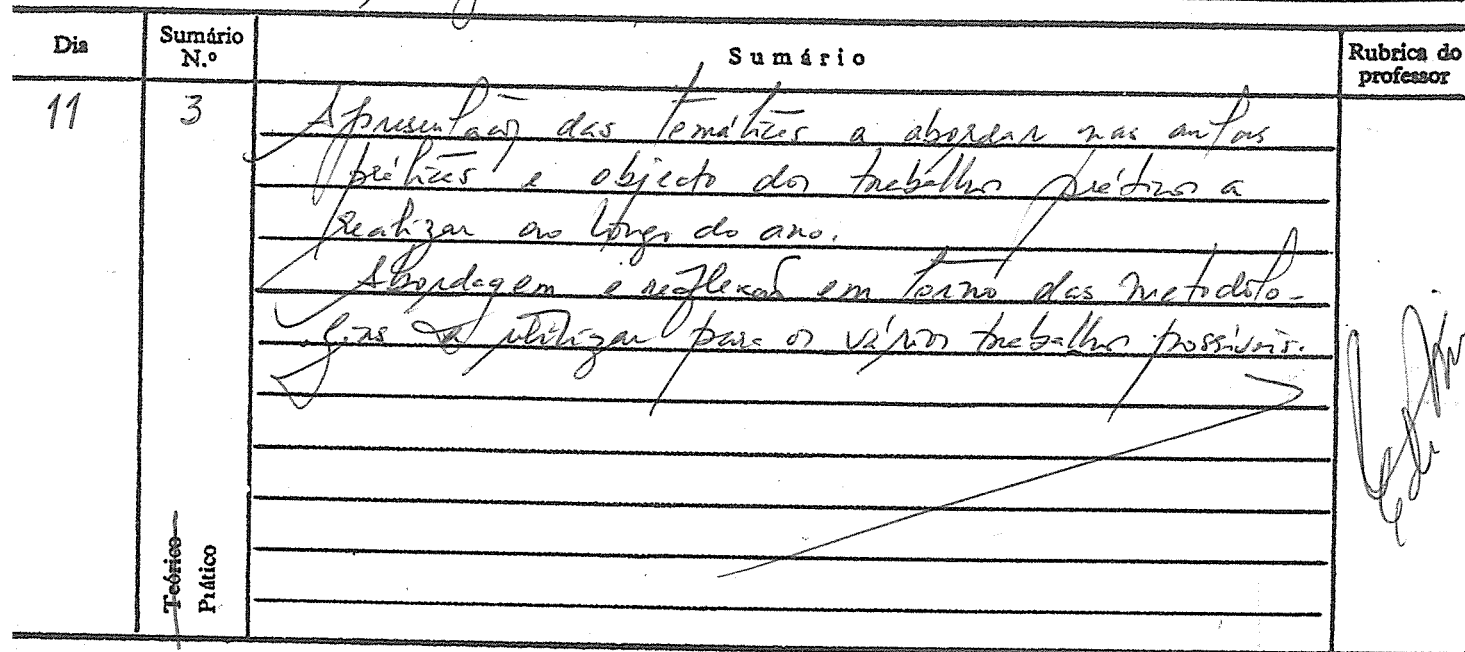 Dia
Sumário N.º
Sumário
Rubrica do professor
11
3
Apresentação das temáticas a abordar nas aulas
práticas e objecto dos trabalhos práticos a
realizar ao longo do ano.
Abordagem e reflexão em torno das metodolo-
gias a utilizar para os vários trabalhos possíveis.
Teórico
Prático